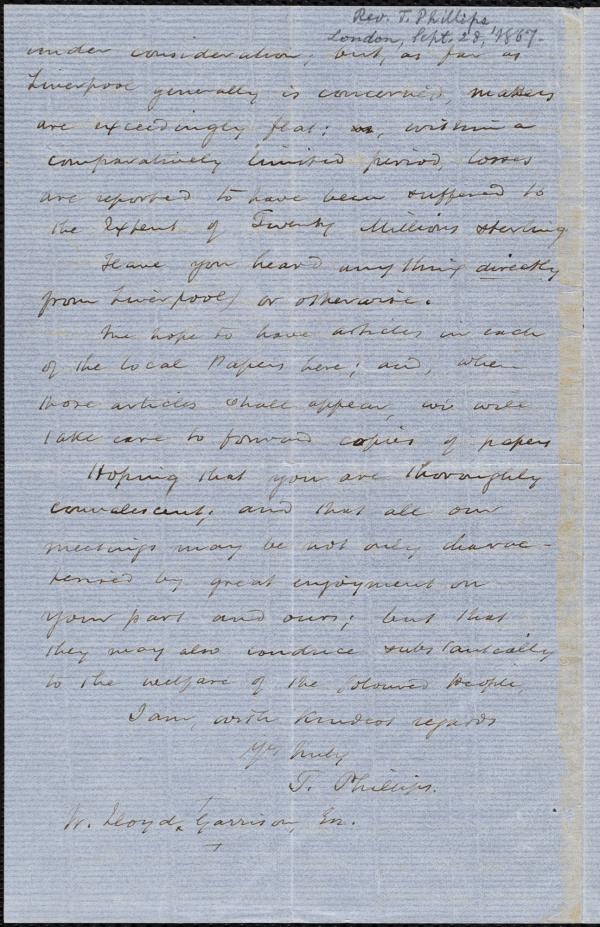 Rev. T. Phillips
London, Sept. 28, 1867.
under consideration, but, as far as
Liverpool generally is concerned, matters
are exceedingly flat: as, within a
comparatively limited period, losses
are reported to have been suffered to
the Extent of Twenty Millions sterling
Have you heard anything directly
from Liverpool) or otherwise.
We hope to have articles in each
of the local Papers here; and, when
those articles shall appear, we will
take care to forward copies of papers
Hoping that you are thoroughly
convalescent; and that all our
meetings may be not only charac-
terised by great enjoyment on
your part and ours; but that
they may also conduce substantially
to the welfare of the Coloured People,
I am, with kindest regards
Yrs truly
T. Phillips.
W. Lloyd Garrison, Esq.